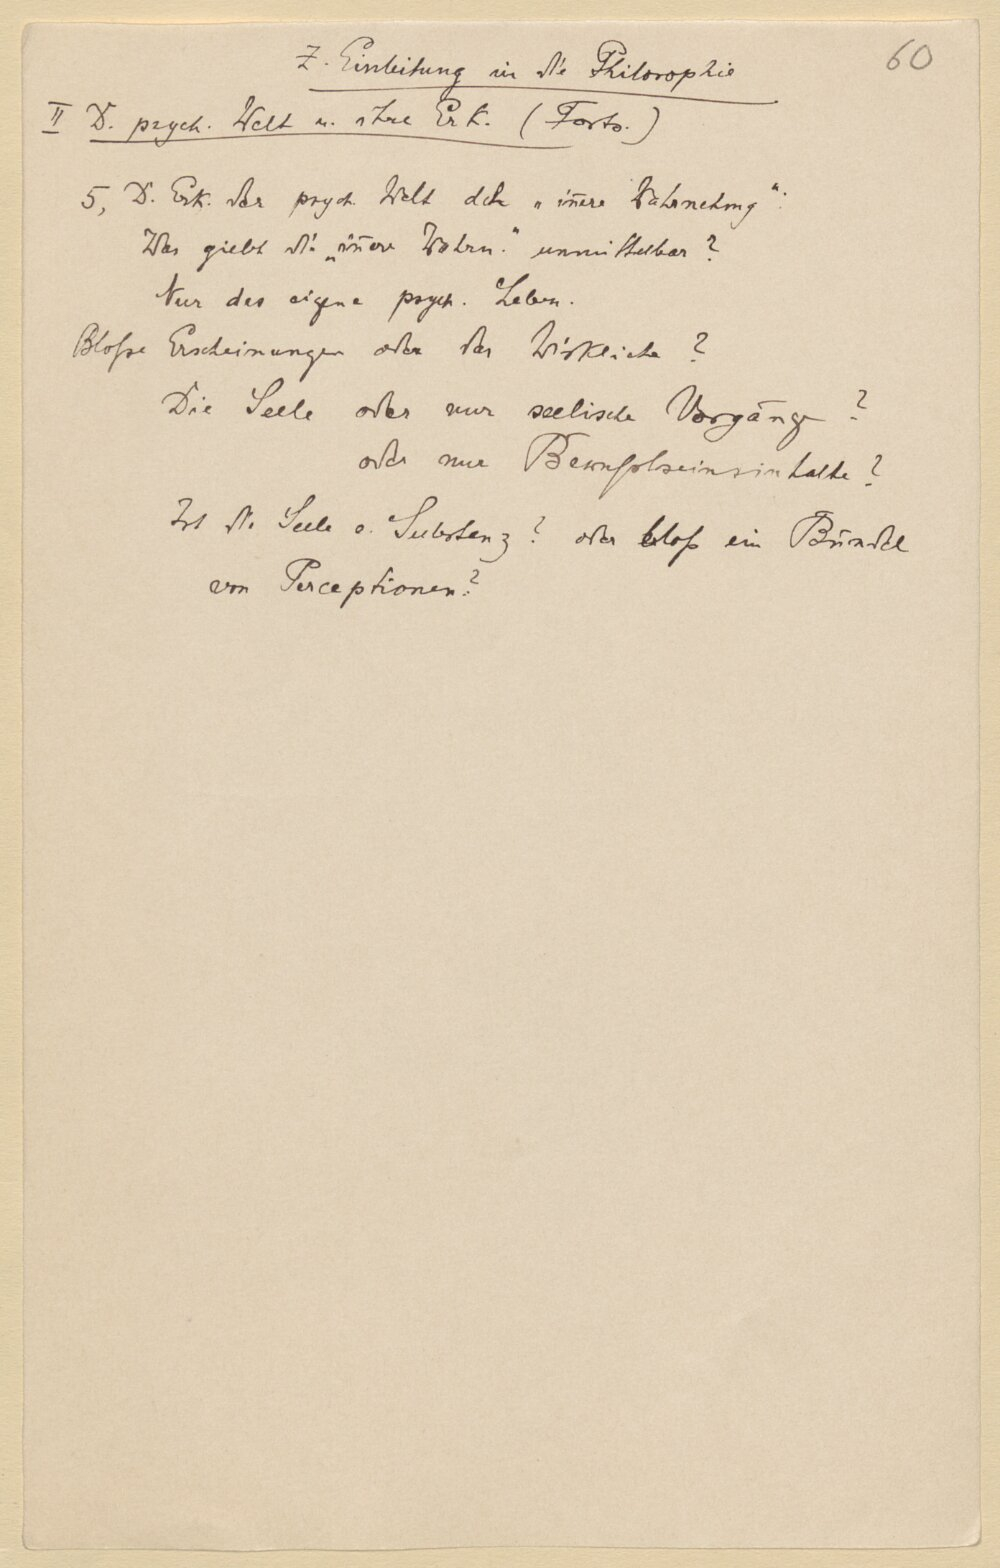 60
Z. Einleitung in die Philosophie
II D. psych. Welt u. ihre Erk. (Forts.)
5, D. Erk. der psych. Welt dch „iñere Wahrnehmg“:
Was giebt die „iñere Wahrn.“ unmittelbar?
Nur das eigene psych. Leben.
Bloße Erscheinungen oder das Wirkliche?
Die Seele oder nur seelische Vorgänge?
oder nur Bewußtseinsinhalte?
Ist die Seele e. Substanz? oder bloß ein Bündel
von Perceptionen?